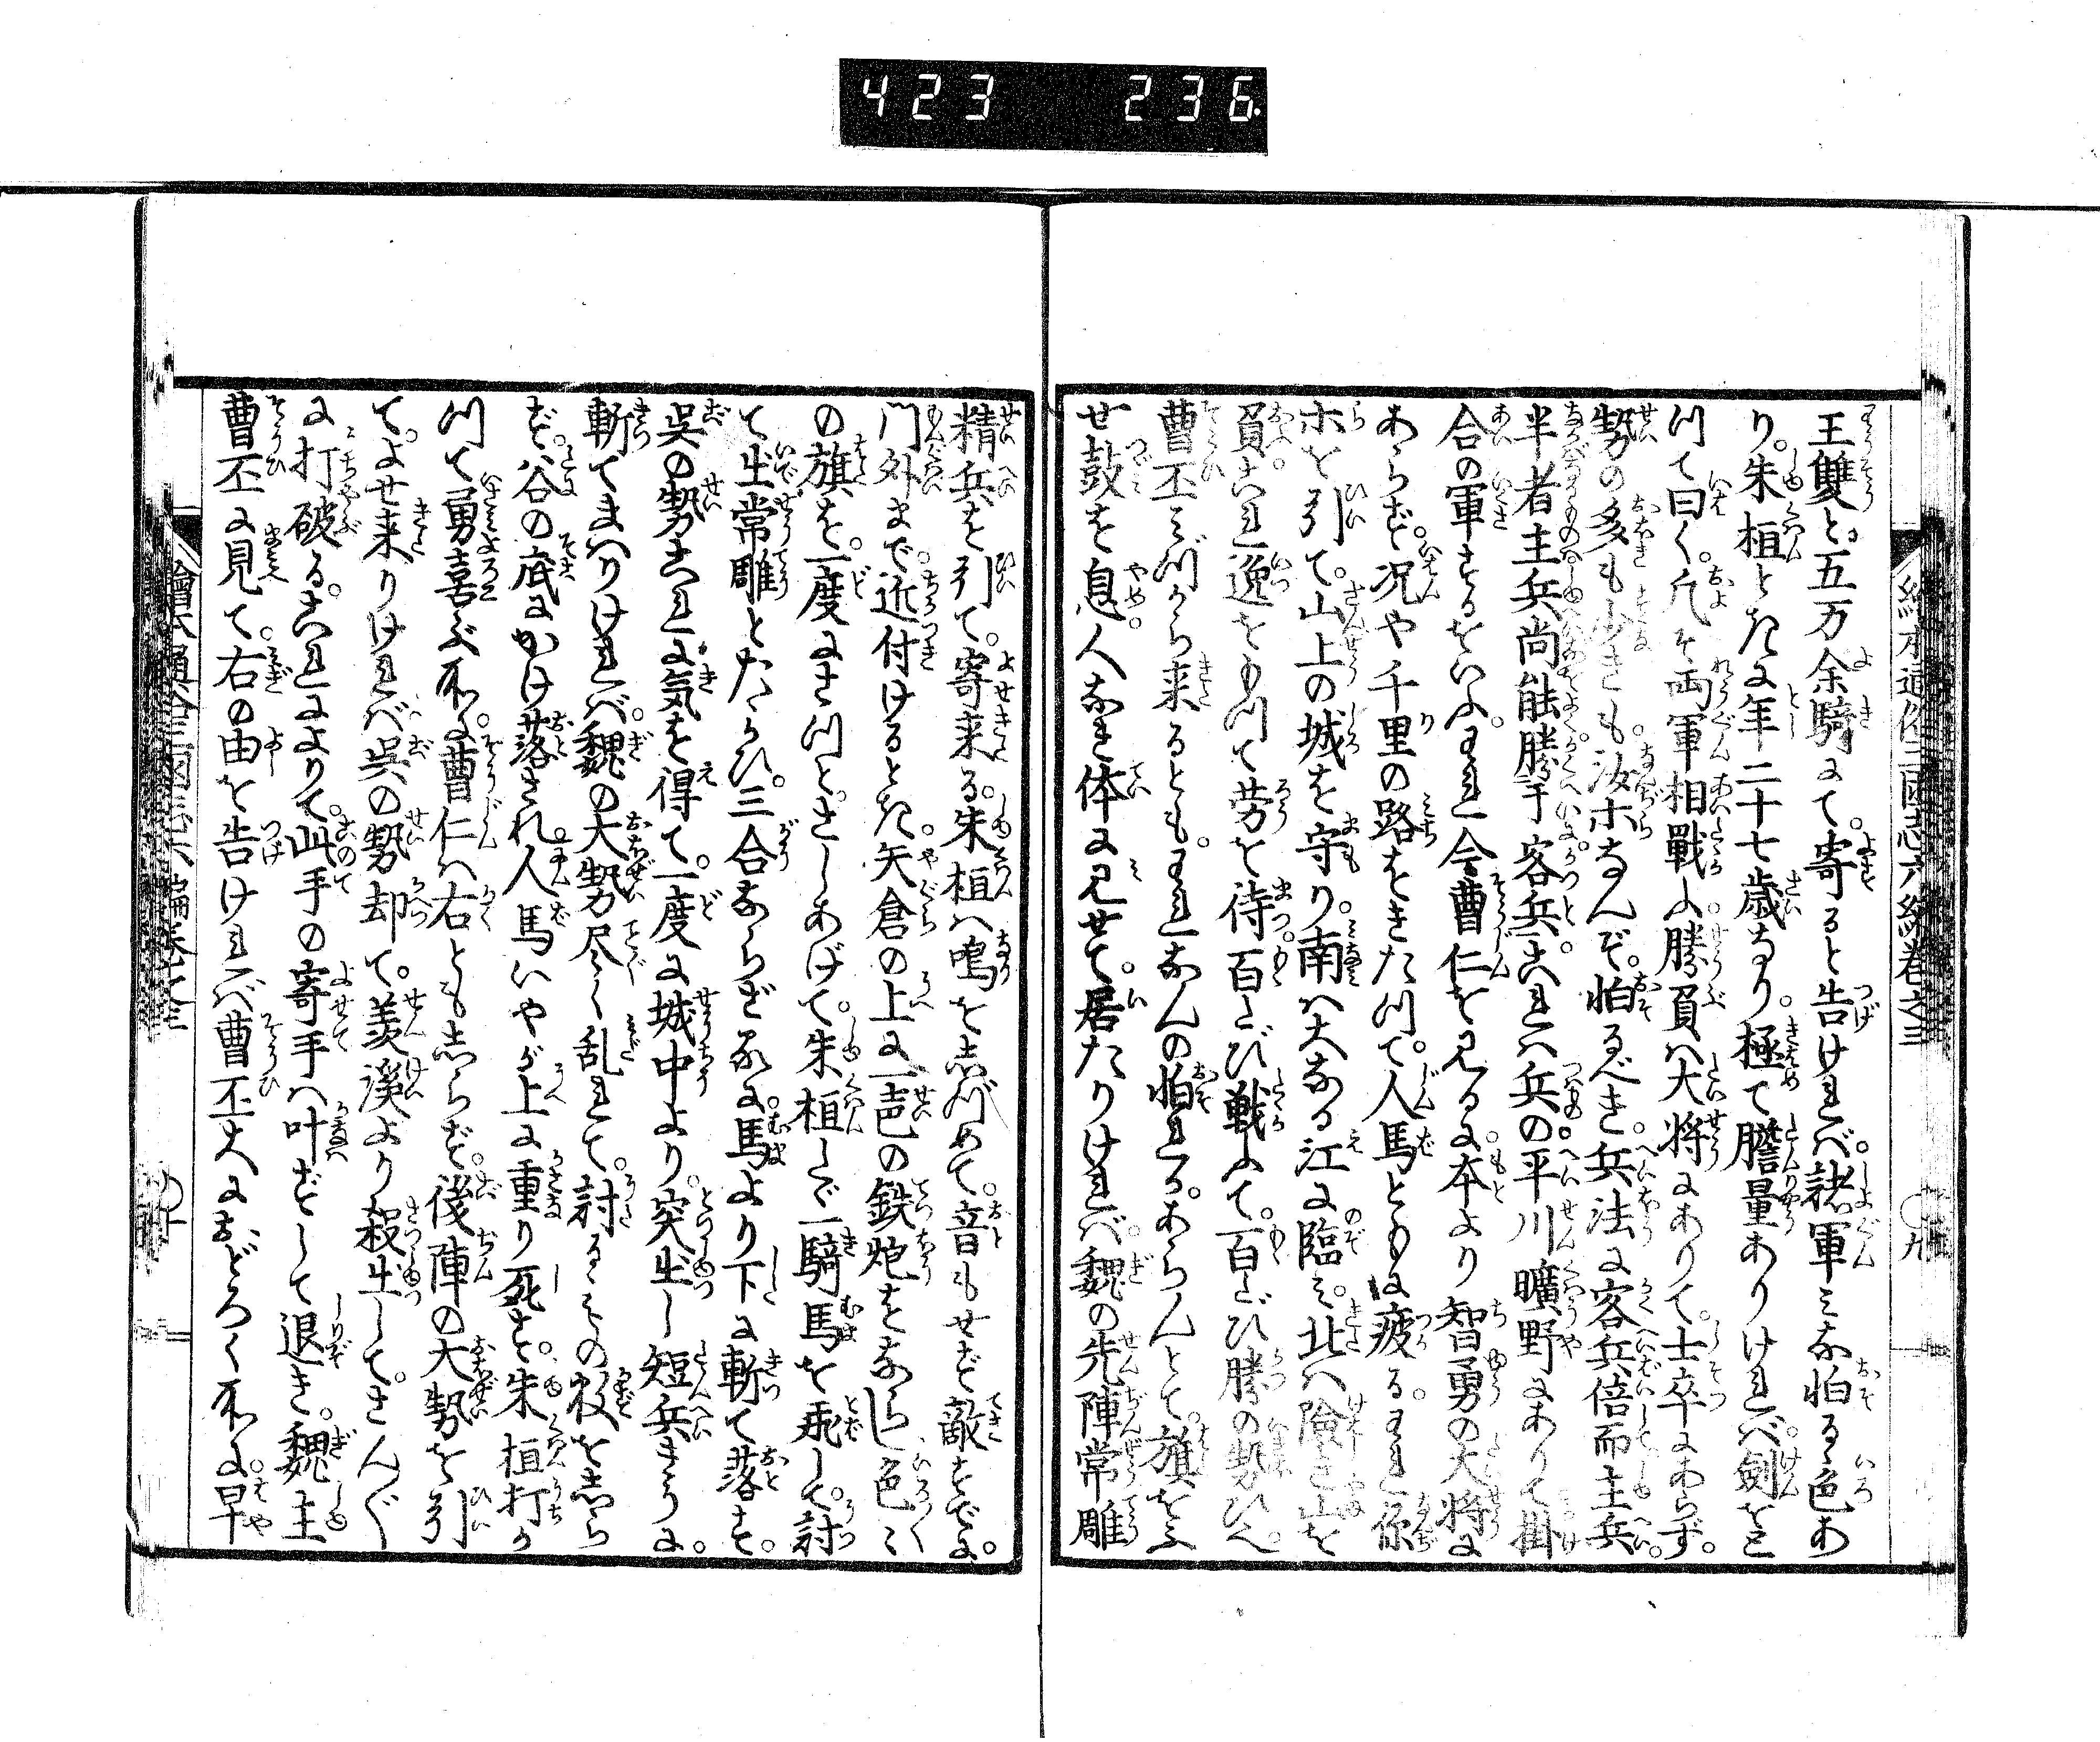 423 236.
繪本通俗三國志六編巻之三
〇九
王雙と五万余騎にて。寄ると告けれバ。諸軍ミな怕るゝ色あ
り。朱桓ときに年二十七歳なり。極て膽量ありけれバ。劍を
つて曰く。凡そ両軍相戰ふ。勝負ハ大将にありて。士卒にあらず。
勢の多も少きも。汝ホなんぞ。怕るべき。兵法に客兵倍而主兵
半者主兵尚能勝于客兵。これハ兵の平川曠野にありて掛
合の軍するをいふ。われ今曹仁を見るに。本より智勇の大将に
あらず。况や千里の路をきたつて。人馬ともに疲る。われ你
ホを引て。山上の城を守り。南ハ大なる江に臨ミ。北ハ険き山を
負。これ逸をもつて労を待。百たび戦ふて。百たび勝の勢ひ。
曹丕ミづから来るとも。われなんの怕れるゝあらんとて。旗をふ
せ鼓を息。人なき体に見せて。居たりけれバ。魏の先陣常雕
精兵を引て。寄来る。朱桓ハ鳴を志づめて。音もせず敵すでに。
門外まで。近付けるとき。矢倉の上に一声の鉄炮をならし。色ミ
の旗を。一度にさつと。さしあげて。朱桓たゞ一騎馬を飛して。討
て出常雕とたゝかひ。三合ならざるに。馬より下に斬て落す。
呉の勢これに気を得て。一度に城中より。突出し短兵きうに。
斬てまハりけれバ。魏の大勢尽く乱れて。討るゝその数を志ら
ず。谷の底にかけ落され。人馬いやが上に重り死す。朱桓打か
つて勇喜ぶ所に。曹仁ハ右ともらず。後陣の大勢を引
て。よせ来りけれバ。呉の勢却て。羨溪より殺出して。さんゞ
に打破る。これによりて。此手の寄手ハ叶ずして退き。魏主
曹丕に見て。右の由を告けれバ曹丕大におどろく所に。早
繪本通俗三國志六編巻之三